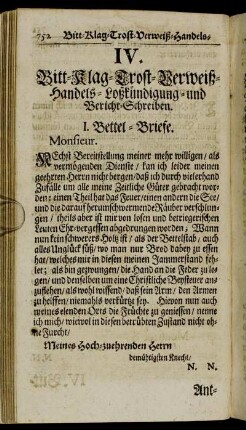 752 Bitt-Klag-Trost-Verweiß-Handels-
IV.
Bitt-Klag-Trost-Verweiß-
Handels-Loßkündigung-und
Bericht-Schreiben.
I. Bettel-Briefe.
Monsieur.
NEchst Bereitstellung meiner mehr willigen/ als
vermögenden Dienste/ kan ich leider meinen
geehrten Herrn nicht bergen/ daß ich durch vielerhand
Zufälle um alle meine Zeitliche Güter gebracht wor-
den: einen Theil hat das Feuer/ einen andern die See/
und die darauf herumschwermende Räuber verschlun-
gen/ theils aber ist mir von losen und betriegerischen
Leuten Ehr-vergessen abgedrungen worden; Wann
nun kein schwerers Holtz ist/ als der Bettelstab/ auch
alles Unglück süß/ wo man nur Brod dabey zu essen
hat/ welches mir in diesen meinen Jammerstand feh-
let; als bin gezwungen/ die Hand an die Feder zu le-
gen/ und denselben um eine Christliche Beysteuer an-
zuflehen/ als wohl wissend/ daß sein Arm/ den Armen
zu helffen/ niemahls verkürtzt sey. Hievon nun auch
meines elenden Orts die Früchte zu geniessen/ nenne
ich mich/ wievol in diesen betrübten Zustand nicht oh-
ne Furcht/
Meines Hoch-zuehrenden Herrn
demühtigsten Knecht/
N. N.
Ant-